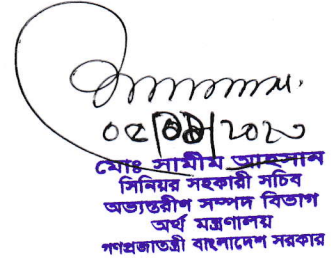 ০৫|০৯|২০২৩
মোঃ সামীম আহসান
সিনিয়র সহকারী সচিব
অভ্যন্তরীণ সম্পদ বিভাগ
অর্থ মন্ত্রণালয়
গণপ্রজাতন্ত্রী বাংলাদেশ সরকার